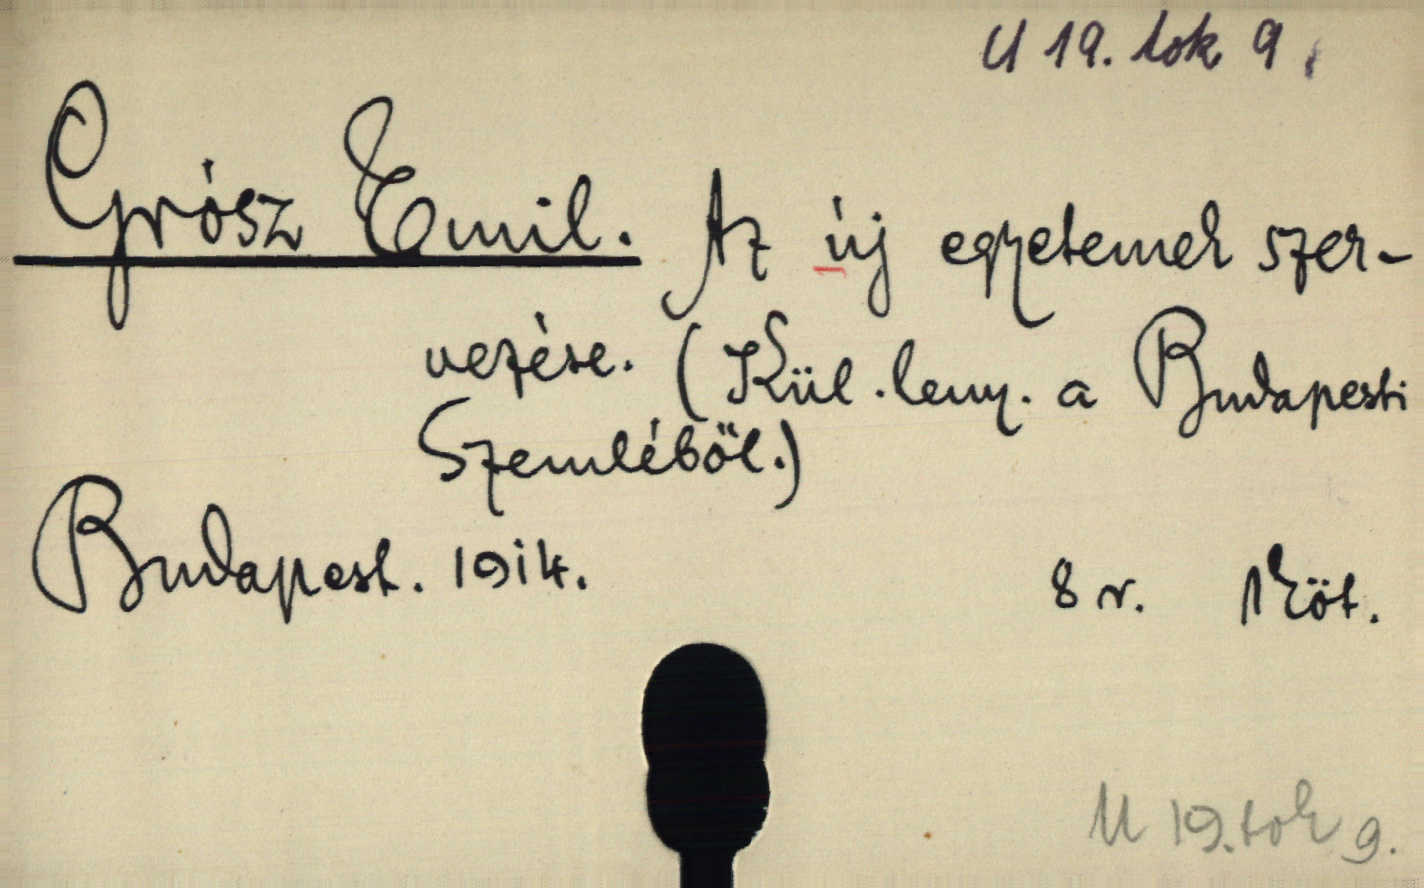 U 19. tok 9.
Grósz Emil. Az új egyetemek szer-
vezése. (Kül. leny. a Budapesti
Szemléből.)
Budapest. 1914. 8 r. 1 köt.
U 19. tok 9.